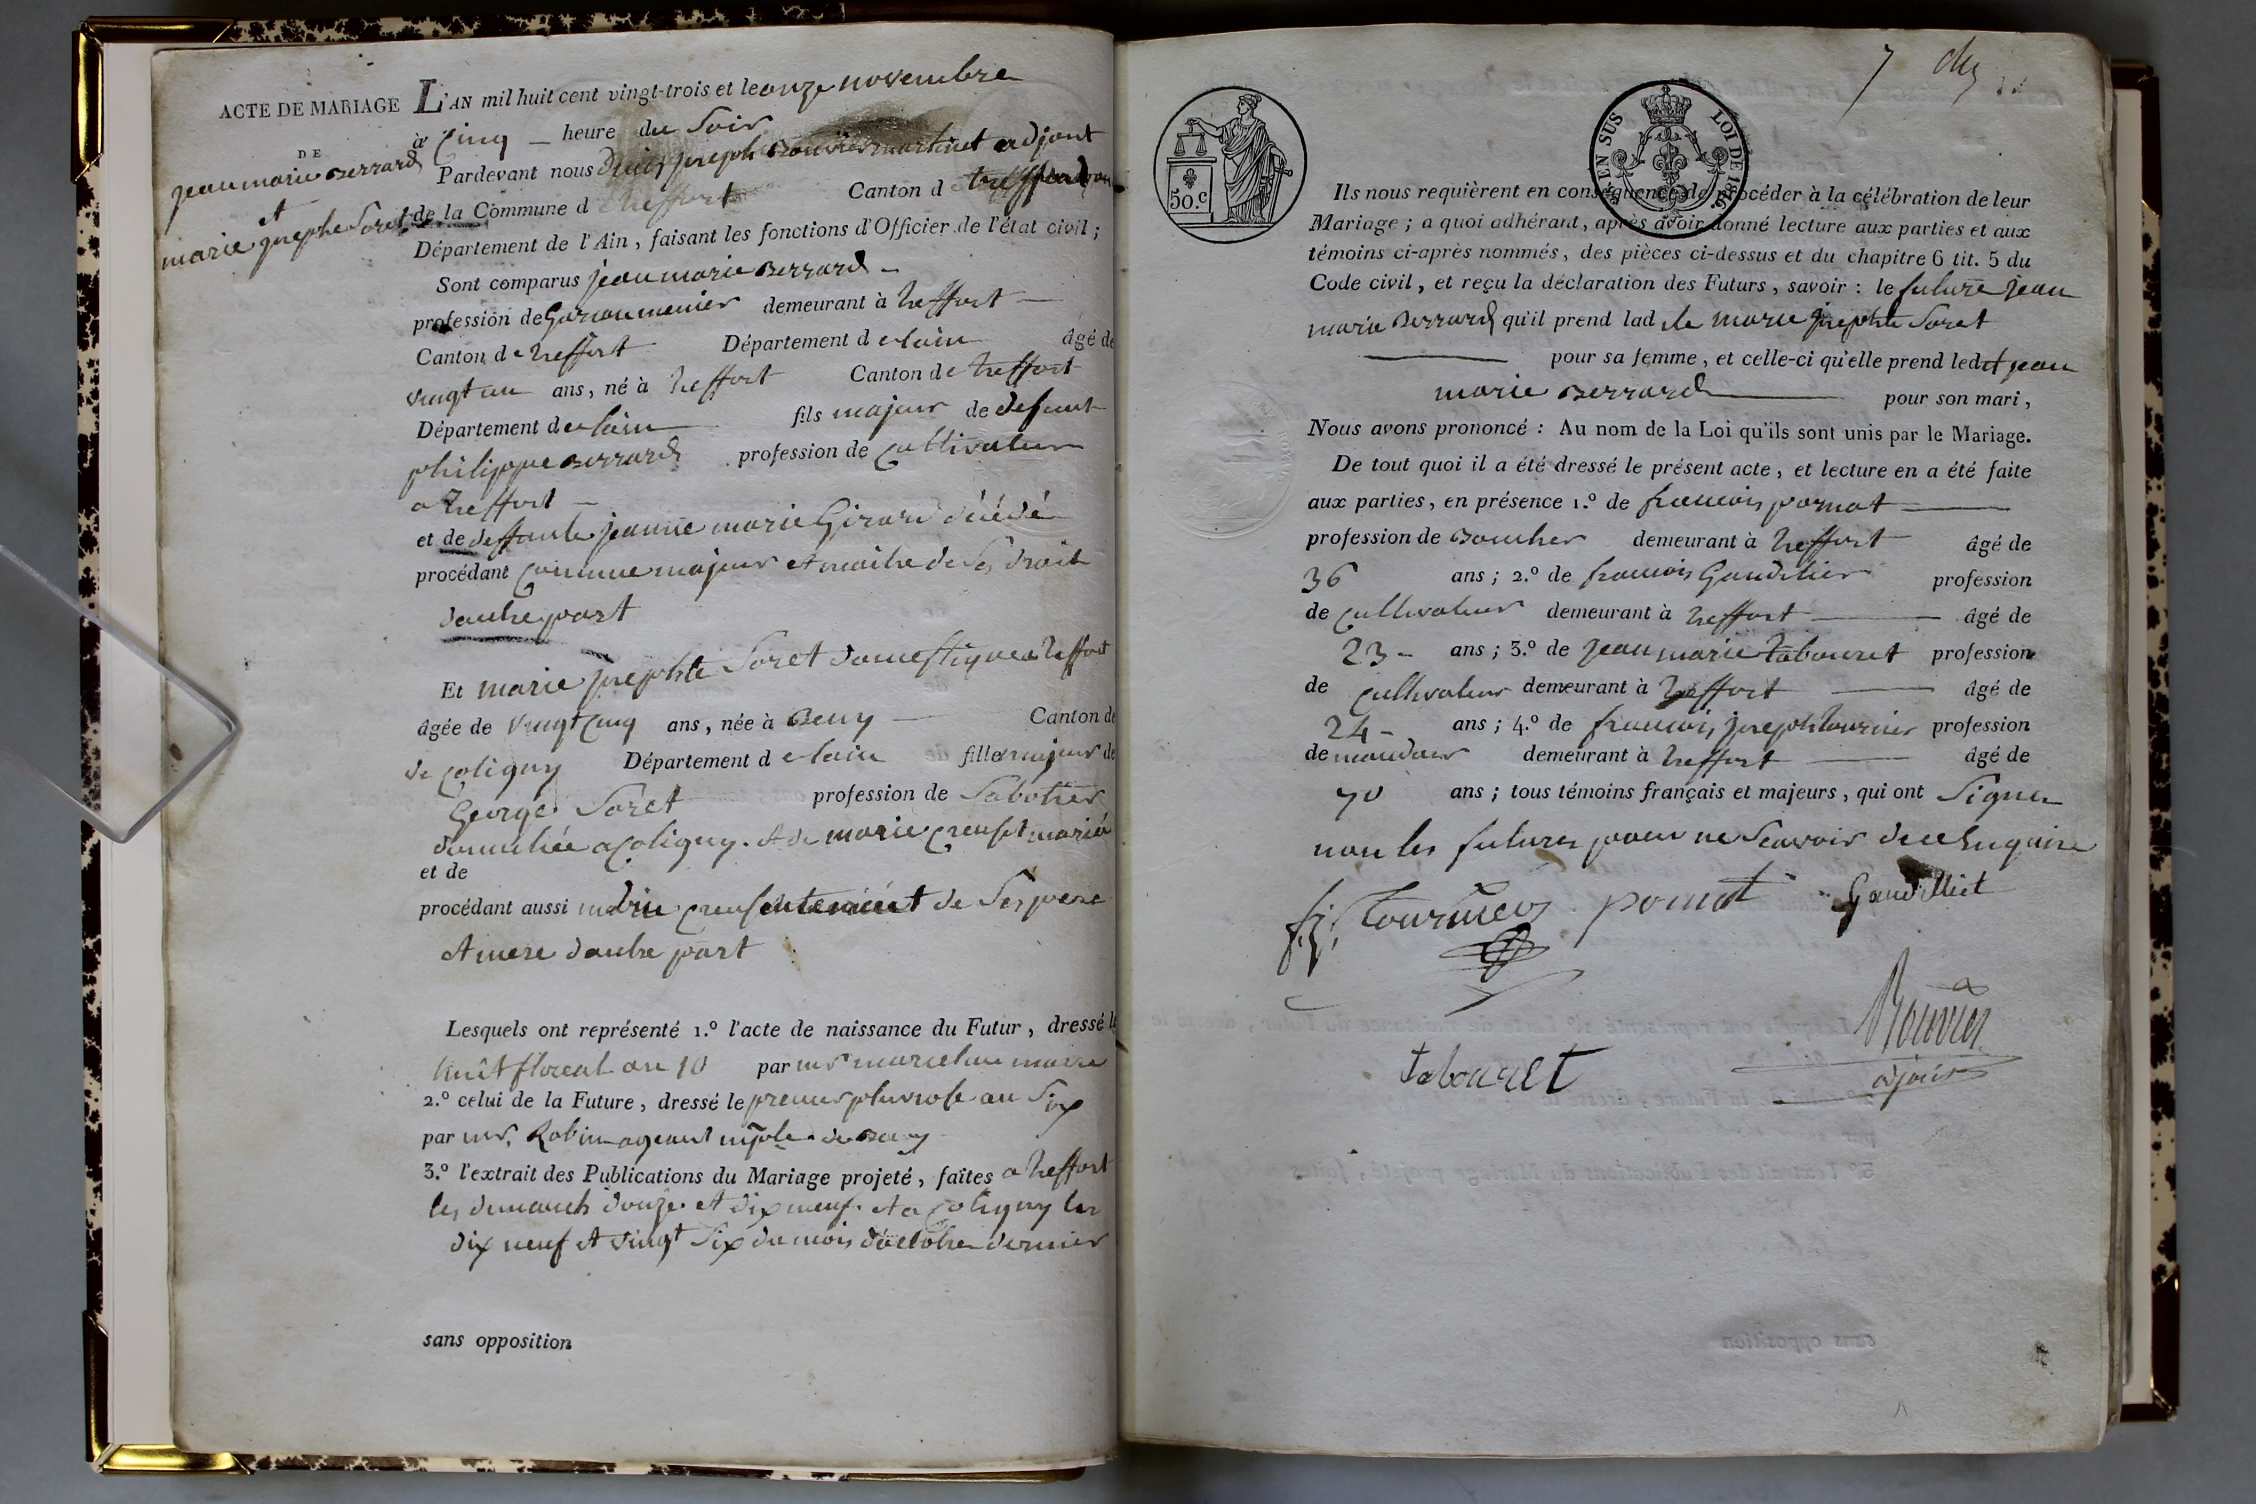 ACTE DE MARIAGE
DE
jean marie Berrard
et
marie josephe Soret
L'AN mil huit cent vingt-trois et le onze novembre
à Cinq heure du Soir
Pardevant nous joseph Bouvier martinet adjont
de la Commune de treffort Canton de treffort
Département de l'Ain, faisant les fonctions d'Officier de l'état civil;
Sont comparus jean marie Berrard
profession de Garson menier demeurant à treffort
Canton de treffort Département de lain âgé de
vingt un ans, né à treffort Canton de treffort
Département de lain fils majeur de defunt
philippe Berrard profession de Cultivateur
a treffort
et de deffunte jeanne marie Girard décédé
procédant Comme majeur et maitre de Ses droit
dautre part
Et marie josephte Soret domestique a treffort
âgée de vingt Cinq ans, née à Beny Canton de
de Coligny Département de lain fille majeur de
George Soret profession de Sabotier
domiciliée a Coligny. et de marie Creuset mariée
et de
procédant aussi de Ses pere
et mere dautre part
Lesquels ont représenté 1.º l'acte de naissance du Futur, dressé le
huit floreal an 10 par mr maire
2.º celui de la Future, dressé le premier pluviose an Six
par mr. Robin agent mple de Beny
3.º l'extrait des Publications du Mariage projeté, faites a treffort
les dimanch douze et dix neuf. et a Coligny les
dix neuf et vingt Six du mois d'octobre dernier
sans opposition
7
50.c
EN SUS LOI DE 1816
Ils nous requièrent en conséquence de procéder à la célébration de leur
Mariage; a quoi adhérant, après avoir donné lecture aux parties et aux
témoins ci-après nommés, des pièces ci-dessus et du chapitre 6 tit. 5 du
Code civil, et reçu la déclaration des Futurs, savoir: le future jean
marie Berrard qu'il prend lad te marie josephte Soret
pour sa femme, et celle-ci qu'elle prend ledt jean
marie Berrard pour son mari,
Nous avons prononcé: Au nom de la Loi qu'ils sont unis par le Mariage.
De tout quoi il a été dressé le présent acte, et lecture en a été faite
aux parties, en présence 1.º de francois pomat
profession de Boucher demeurant à treffort âgé de
36 ans; 2.º de francois Gaudilier profession
de Cultivateur demeurant à treffort âgé de
23 ans; 3.º de jean marie tabouret profession
de Cultivateur demeurant à treffort âgé de
24 ans; 4.º de francois joseph tournier profession
de demeurant à treffort âgé de
70 ans; tous témoins français et majeurs, qui ont Signer
non les futures pour ne Scavoir de ce Enquire
fj, Tournier pomat Gaudilliet
Bouvier
tabouret
ajoint